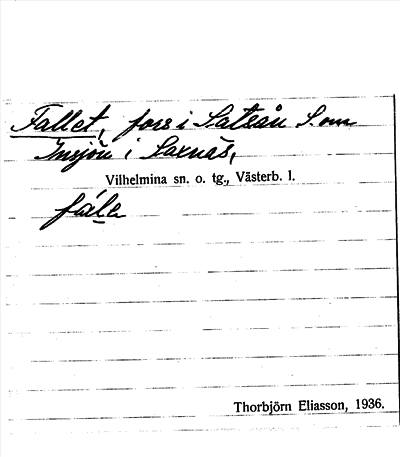 Fallet, fors i Satsån S. om
Insjön i Saxnäs,
Vilhelmina sn. o. tg., Västerb. l.
fále
Thorbjörn Eliasson, 1936.